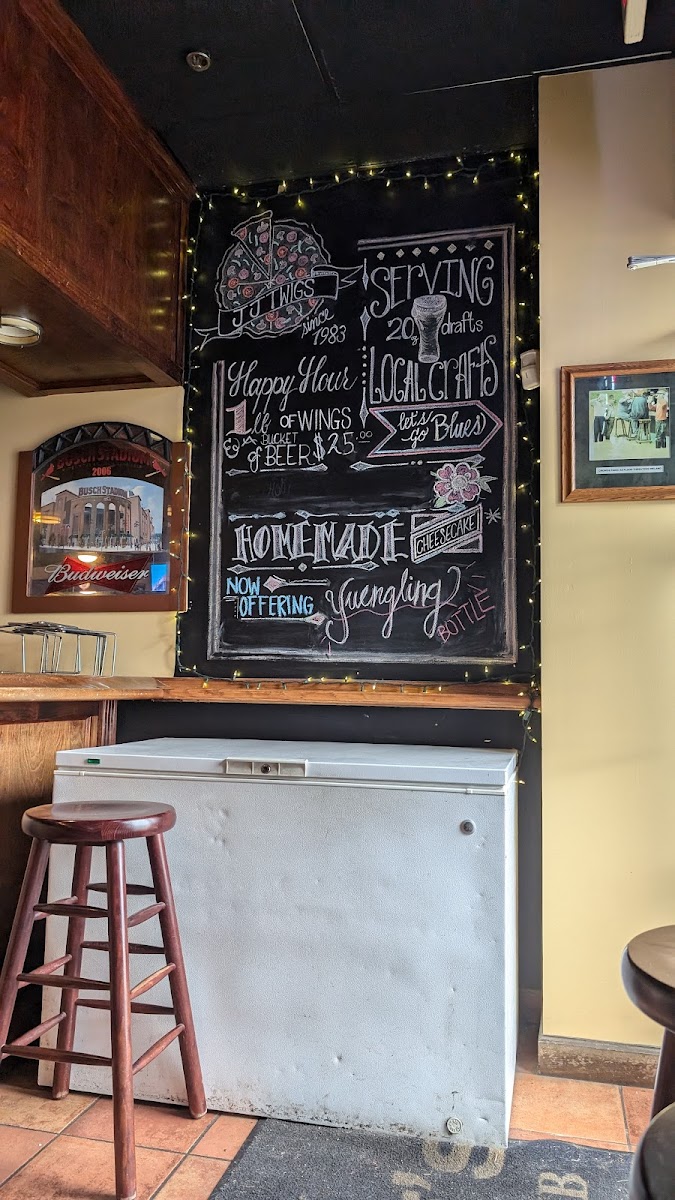 JJ TWIGS
since
1983
SERVING
20oz drafts
LOCAL CRAFTS
let's
go Blues
Happy Hour
1 lb OF WINGS
& A BUCKET
of BEER $25.00
HOMEMADE
CHEESECAKE
NOW
OFFERING
Yuengling
BOTTLE
BUSCH STADIUM
2006
BUSCH STADIUM
Budweiser